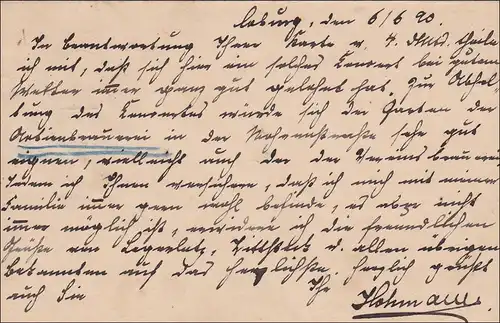 Coburg, den 6/6 90.
In Beantwortung Ihrer Karte v. 4. dMts. theile
ich mit, daß sich hier ein solches Concert bei gutem
Wetter immer ganz gut gelohnt hat. Zur Abhal-
tung des Concertes würde sich der Garten der
Actienbrauerei in der sehr gut
eignen, vielleicht auch der der Vereinsbrauerei
Indem ich Ihnen versichere, daß ich mich mit meiner
Familie immer gern wohl befinde, es aber nicht
immer möglich ist, erwidere ich die freundlichen
Grüße von u. allen übrigen
Bekannten auf das herzlichste. Herzlich grüßt
auch Sie Ihr
Hofmann